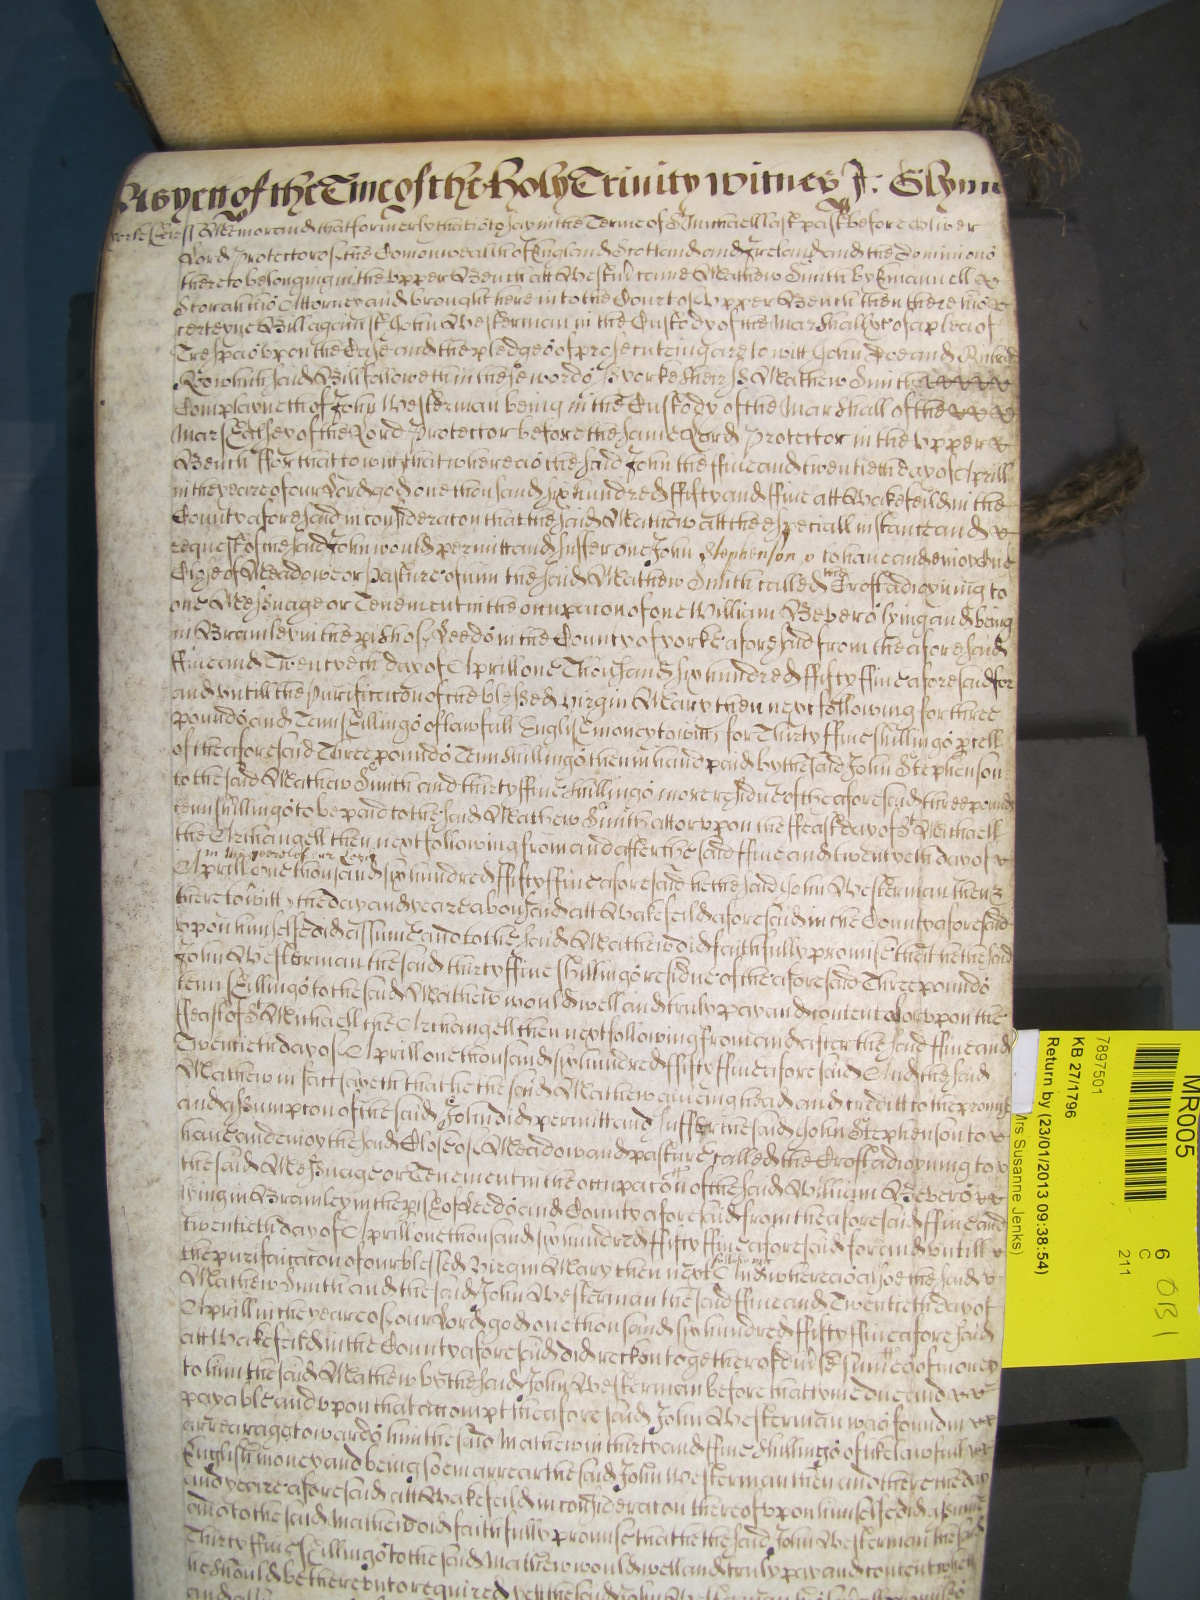 As yett of the Tme of the Holy Trinity Witnes J: Glynn
Yorkesheir ss Memorand that formerly that is to say in the Terme of St Michaell last past before Oliver
Lord Protector of the Comonwealth of England Scotland and Ireland and the Dominions
thereto belonging in the upper Bench att Westm came Mathew Smith by Emanuell
his Attorney and brought here into the Court of Upper Bench then there his
certeyne Bill against John Westerman in the Custody of the Marshall &c of a plea of
Trespas upon the Case and the pledges of prosecuting are to witt John Doe and Richard
Roo which said Bill followeth in these words ss Yorkesheir ss Mathew Smith
Complayneth of John Westerman being in the Custody of the Marshall of the
Marshalsey of the Lord Protector before the same Lord Protector in the upper
Bench ffor that to witt that whereas the said John the ffive and twentieth day of Aprill
in the yeare of our Lord god one thousand six hundred ffifty and ffive att Wakefeild in the
County aforesaid in consideracon that the said Mathew att the especiall instance and
request of the said John would permitt and suffer one John Stephenson to have and enioy one
Close of Meadowe or Pasture of him the said Mathew Smith called the Croft adioyning to
one Messuage or Tenement in the occupacon of one William Bevers lying and being
in Bramley in the pish of Leeds in the County of yorke aforesaid from the aforesaid
ffive and Twentyeth day of Aprill one Thousand six hundred ffifty ffive aforesaid for
and untill the Purificacon of the blessed virgin Mary then next following for three
pounds and Tenn shillings of lawfull English money to witt for Thirty ffive shillings pcell
of the aforesaid Three pounds Tenn shillings then in hand paid by the said John Stephenson
to the said Mathew Smith and thirty ffive shillings more residue of the aforesaid three pounds
tenn shillings to be paid to the said Mathew Smith att or upon the ffeast day of St Michaell
the Archangell then next following from and after the said ffive and twentyeth day of
in the yeare of our Lord
Aprill one thousand six hundred ffifty ffive aforesaid he the said John Westerman then
there to witt the day and yeare abovesaid att Wakefeild aforesaid in the County aforesaid
upon himselfe did assume and to the said Mathew did faithfully promise that he the said
John Westerman the said thirty ffive shillings residue of the aforesaid Three pounds
tenn shillings to the said Mathew would well and truly pay and content att or upon the
ffeast of St Michaell the Archangell then next following from and after the said ffive and
Twentieth day of Aprill one thousand six hundred ffifty ffive aforesaid And the said
Mathew in fact sayeth that he the said Mathew giveing head and creditt to the promise
and assumpcon of the said John did permitt and suffer the said John Stephenson to
have and enioy the said Close of Meadow and pasture called the Croft adioyning to
the said Messuage or Tenement in the occupacon of the said William Bevers
lying in Bramley in the pish of Leeds and County aforesaid from the aforesaid ffive and
twentieth day of Aprill one thousand six hundred ffifty ffive aforesaid for and untill
the purificacon of our blessed Virgin Mary then next following And whereas alsoe the said
Mathew Smith and the said John Westerman the said ffive and Twentieth day of
Aprill in the yeare of our Lord god one thousand six hundred ffifty ffive aforesaid
att Wakefeild in the County aforesaid did reckon together of divse sumes of money
to him the said Mathew by the said John Westerman before that tyme due and
payable and upon that accompt the aforesaid John Westerman was found in
arrearages towards him the said Mathew in thirty and ffive shillings of like lawfull
English money and being soe in arreare the said John Westerman then and there the day
and yeare aforesaid att Wakefeild in consideracon thereof upon himselfe did assume
and to the said Mathew did faithfully promise that he the said John Westerman the said
Thirty ffive shillings to the said Mathew would well and truly pay and content when
he should be thereunto required yett the said John Westerman
MR005
6
C
211
OB1
7897501
KB 27/1796
Return by (23/01/2013 09:38:54)
Mrs Susanne Jenks)